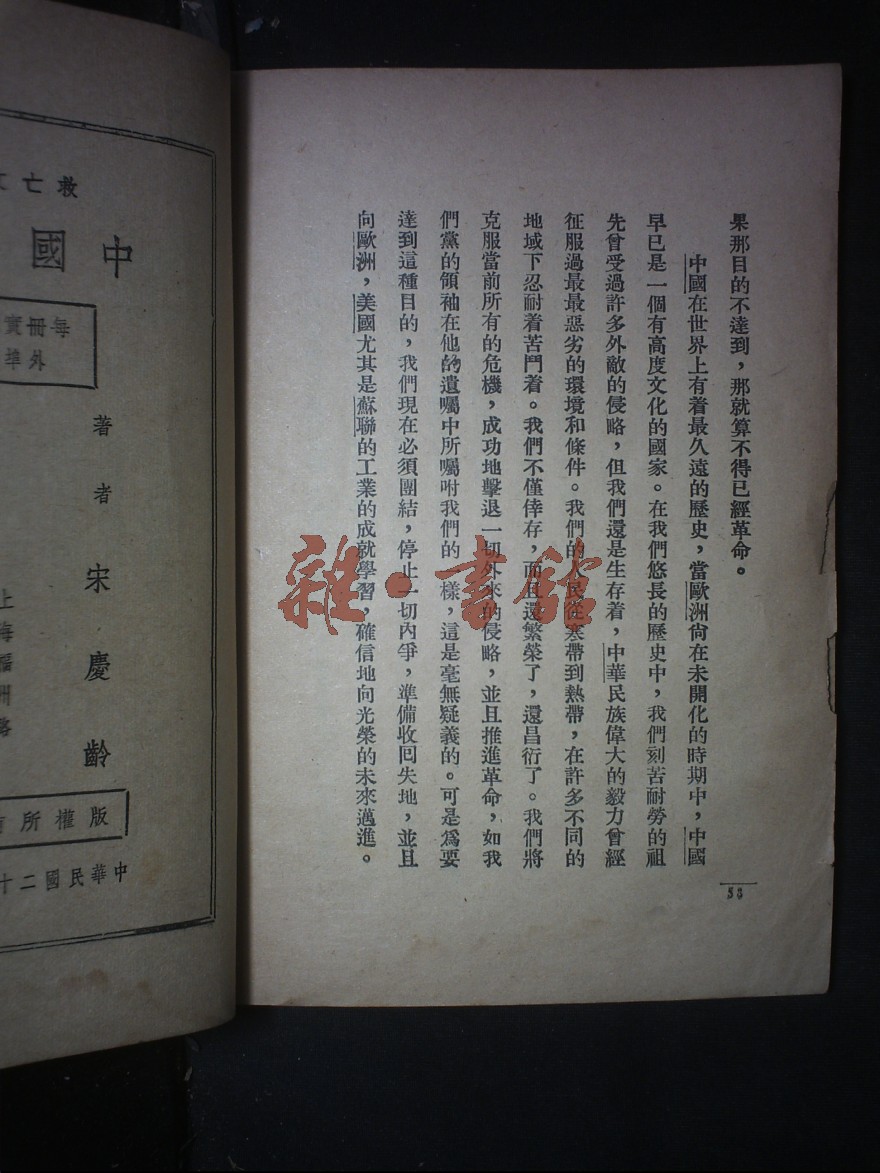 果那目的不達到，那就算不得已經革命。
中國在世界上有着最久遠的歷史，當歐洲尙在未開化的時期中，中國
早已是一個有高度文化的國家。在我們悠長的歷史中，我們刻苦耐勞的祖
先曾受過許多外敵的侵略，但我們還是生存着，中華民族偉大的毅力曾經
征服過最最惡劣的環境和條件。我們的人民從寒帶到熱帶，在許多不同的
地域下忍耐着苦鬥着。我們不僅倖存，而且還繁榮了，還昌衍了。我們將
克服當前所有的危機，成功地擊退一切外來的侵略，並且推進革命，如我
們黨的領袖在他的遺囑中所囑咐我們的一樣，這是毫無疑義的。可是爲要
達到這種目的，我們現在必須團結，停止一切內爭，準備收回失地，並且
向歐洲，美國尤其是蘇聯的工業的成就學習，確信地向光榮的未來邁進。
53
救亡
中國
每冊實
外埠
著者 宋慶齡
上海福州路
版權所有
中華民國二十
雜·書館